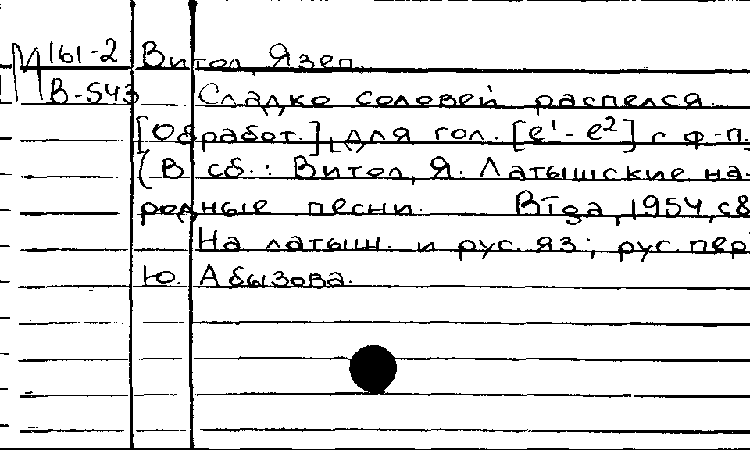 М 161-2 Витол, Язеп.
В-543 Сладко соловей распелся.
[Обработ.] для гол. [e¹-e²] с ф-п.
(В сб.: Витол, Я. Латышские на-
родные песни. Rīga, 1954, с8
На латыш. и рус. яз; рус. пер
Ю. Абызова.